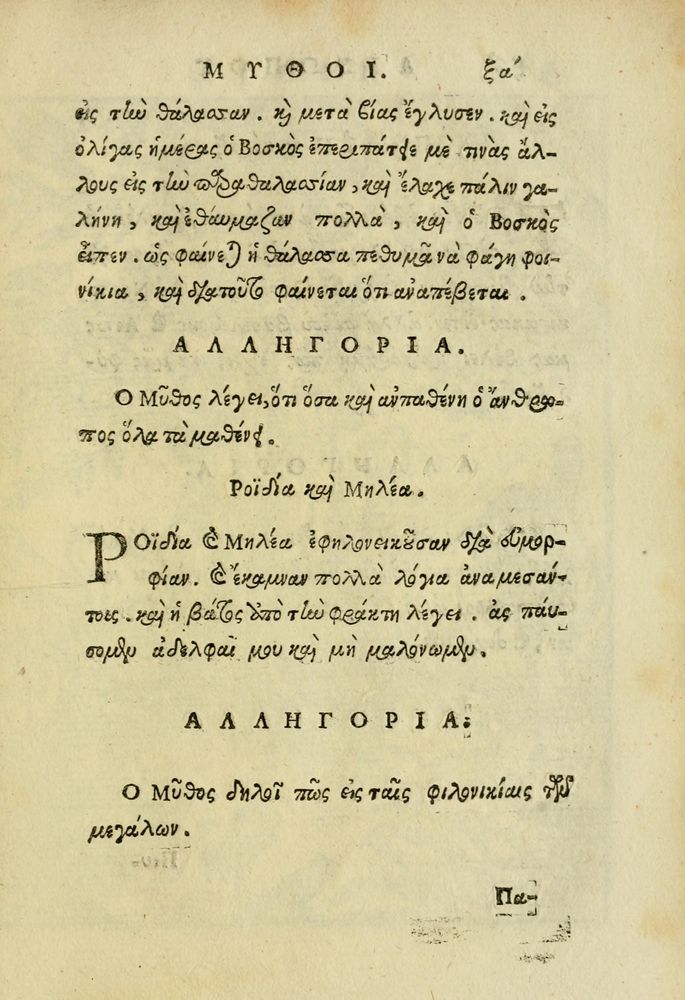 ΜΥΘΟΙ. ξα´
εἰς τὴν θάλασσαν. κὴ μετὰ βίας ἔγλυσεν. καὶ εἰς
ὀλίγας ἡμέρας ὁ Βοσκὸς ἐπερπάτει μὲ τινὰς ἄλ-
λους εἰς τὴν παραθαλασσίαν, καὶ ἔλαχε πάλιν γα-
λήνη, καὶ ἐθαύμαζαν πολλὰ, καὶ ὁ Βοσκὸς
εἶπεν. ὡς φαίνεται ἡ θάλασσα πεθυμᾶ νὰ φάγη φοι-
νίκια, καὶ διατοῦτο φαίνεται ὅτι ἀναπέβεται.
ΑΛΛΗΓΟΡΙΑ.
Ο Μῦθος λέγει, ὅτι ὅσα καὶ ἀνπαθένη ὁ ἄνθρω-
πος ὅλα τὰ μαθένει.
Ροϊδία καὶ Μηλέα.
ΡΟϊδία καὶ Μηλέα ἐφηλονεικοῦσαν διὰ οὐμορ-
φίαν. καὶ ἔκαμναν πολλὰ λόγια ἀναμεσάν-
τοις. καὶ ἡ βάτος ὑπὸ τὴν φράκτη λέγει. ἂς παύ-
σομεν ἀδελφαί μου καὶ μὴ μαλόνωμεν.
ΑΛΛΗΓΟΡΙΑ.
Ο Μῦθος δηλοῖ πῶς εἰς ταῖς φιλονικίαις τῶν
μεγάλων.
Πα-